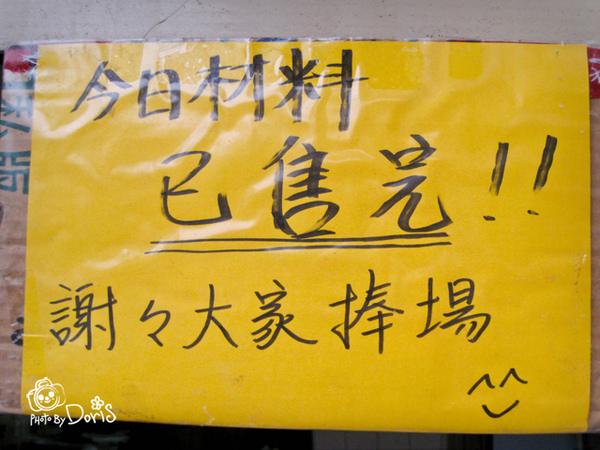 今日材料
已售完!!
謝々大家捧場
PHOTO BY DoriS